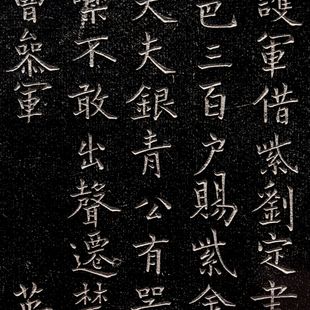 護軍借紫劉定
邑三百户賜紫金
夫銀青公有
不敢出聲遷楚
曹叅軍